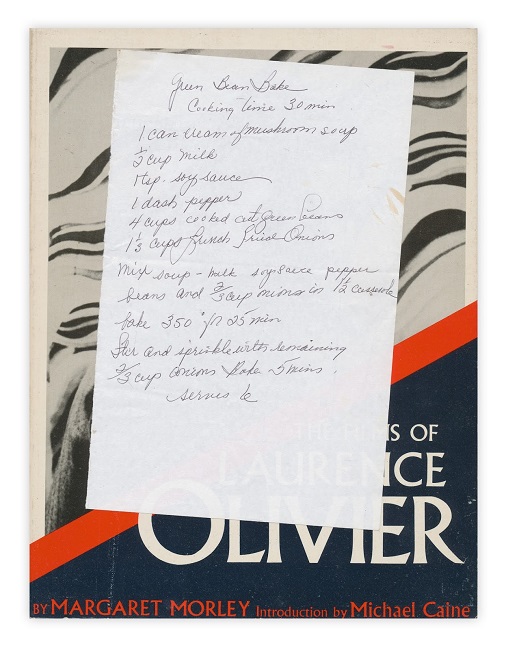 Green Bean Bake
Cooking time 30 min
1 can cream of mushroom soup
½ cup milk
1 tsp. soy sauce
1 dash pepper
4 cups cooked cut green beans
1⅓ cups French Fried Onions
Mix soup - milk soy sauce pepper
beans and ⅔ cup onions in 1½ casserole
bake 350° for 25 min
Stir and sprinkle with remaining
⅔ cup onions Bake 5 mins.
serves 6
THE FILMS OF
LAURENCE
OLIVIER
BY MARGARET MORLEY Introduction by Michael Caine